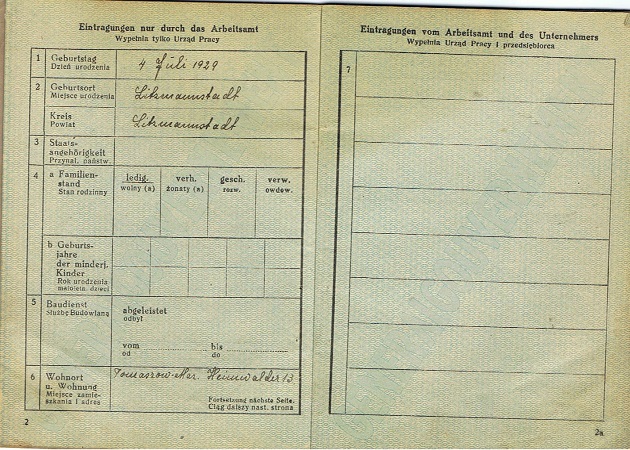 Eintragungen nur durch das Arbeitsamt
Wypełnia tylko Urząd Pracy
1 Geburtstag
Dzień urodzenia
4 Juli 1929
2 Geburtsort
Miejsce urodzenia
Litzmannstadt
Kreis
Powiat
Litzmannstadt
3 Staats-
angehörigkeit
Przynal. państw.
4 a Familien-
stand
Stan rodzinny
ledig. verh. gesch. verw.
wolny (a) żonaty (a) rozw. owdow.
b Geburts-
jahre
der minderj.
Kinder
Rok urodzenia
małoletn. dzieci
5 Baudienst
Służbę Budowlaną
abgeleistet
odbył
vom bis
od do
6 Wohnort
u. Wohnung
Miejsce zamie-
szkania i adres
Tomaszow-Maz. 13
Fortsetzung nächste Seite.
Ciąg dalszy nast. strona
2
Eintragungen vom Arbeitsamt und des Unternehmers
Wypełnia Urząd Pracy i przedsiębiorca
7
2a